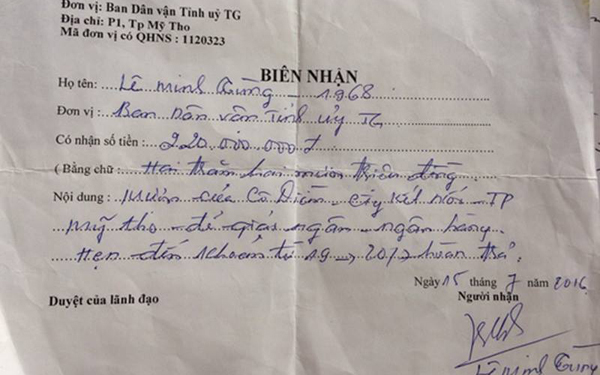 Đơn vị: Ban Dân vận Tỉnh uỷ TG
Địa chỉ: P1, Tp Mỹ Tho
Mã đơn vị có QHNS : 1120323
BIÊN NHẬN
Họ tên: Lê Minh Hùng - 1968
Đơn vị: Ban Dân vận Tỉnh ủy TG
Có nhận số tiền: 220.000.000đ
( Bằng chữ: Hai trăm hai mươi triệu đồng
Nội dung : mượn của Cô Diễm - Cty Kết Nối - TP
Mỹ Tho - để giải ngân - ngân hàng
Hẹn đến khoản từ 19 → 20/7 hoàn trả.
Ngày 15 tháng 7 năm 2016
Duyệt của lãnh đạo Người nhận
Lê Minh Hùng